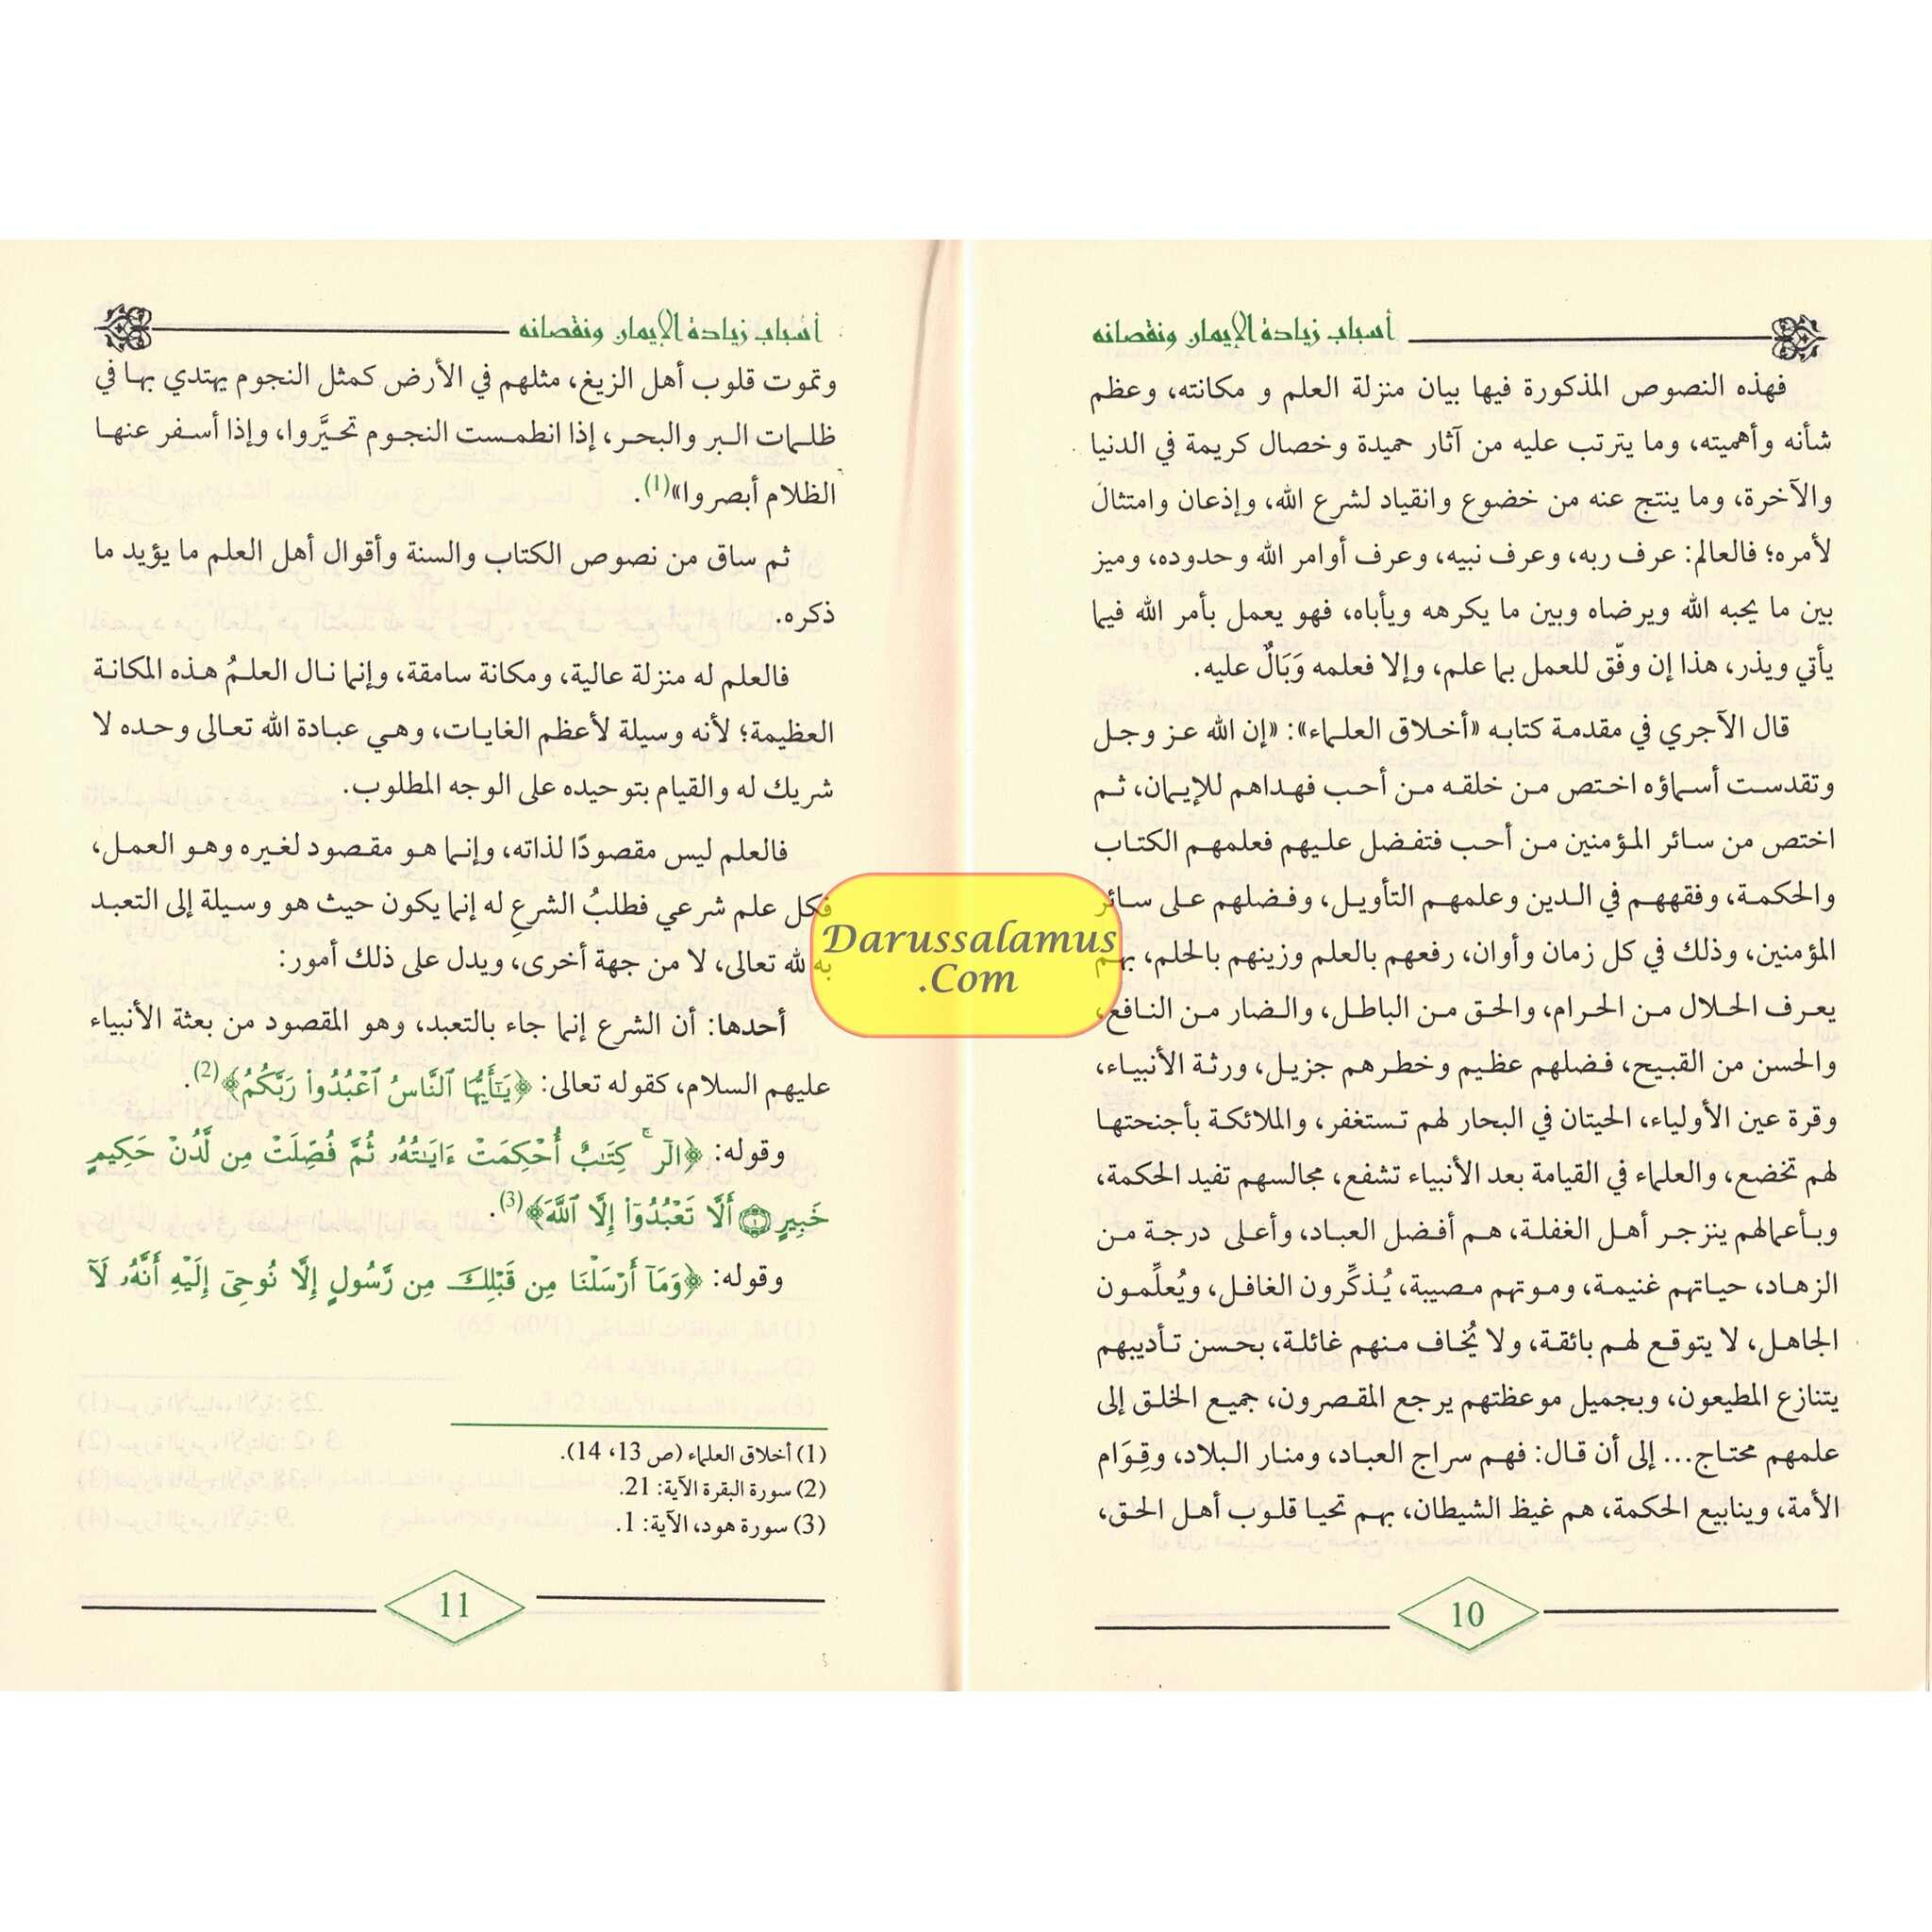 أسباب زيادة الإيمان ونقصانه
فهذه النصوص المذكورة فيها بيان منزلة العلم و مكانته، وعظم
شأنه وأهميته، وما يترتب عليه من آثار حميدة وخصال كريمة في الدنيا
والآخرة، وما ينتج عنه من خضوع وانقياد لشرع الله، وإذعان وامتثال
لأمره؛ فالعالم: عرف ربه، وعرف نبيه، وعرف أوامر الله وحدوده، وميز
بين ما يحبه الله ويرضاه وبين ما يكرهه ويأباه، فهو يعمل بأمر الله فيما
يأتي ويذر، هذا إن وفّق للعمل بما علم، وإلا فعلمه وَبَالٌ عليه.
قال الآجري في مقدمة كتابه «أخلاق العلماء»: «إن الله عز وجل
وتقدست أسماؤه اختص من خلقه من أحب فهداهم للإيمان، ثم
اختص من سائر المؤمنين من أحب فتفضل عليهم فعلمهم الكتاب
والحكمة، وفقههم في الدين وعلمهم التأويل، وفضلهم على سائر
المؤمنين، وذلك في كل زمان وأوان، رفعهم بالعلم وزينهم بالحلم، بهم
يعرف الحلال من الحرام، والحق من الباطل، والضار من النافع،
والحسن من القبيح، فضلهم عظيم وخطرهم جزيل، ورثة الأنبياء،
وقرة عين الأولياء، الحيتان في البحار لهم تستغفر، والملائكة بأجنحتها
لهم تخضع، والعلماء في القيامة بعد الأنبياء تشفع، مجالسهم تفيد الحكمة،
وبأعمالهم ينزجر أهل الغفلة، هم أفضل العباد، وأعلى درجة من
الزهاد، حياتهم غنيمة، وموتهم مصيبة، يُذكِّرون الغافل، ويُعلِّمون
الجاهل، لا يتوقع لهم بائقة، ولا يُخاف منهم غائلة، بحسن تأديبهم
يتنازع المطيعون، وبجميل موعظتهم يرجع المقصرون، جميع الخلق إلى
علمهم محتاج... إلى أن قال: فهم سراج العباد، ومنار البلاد، وقِوَام
الأمة، وينابيع الحكمة، هم غيظ الشيطان، بهم تحيا قلوب أهل الحق،
10
أسباب زيادة الإيمان ونقصانه
وتموت قلوب أهل الزيغ، مثلهم في الأرض كمثل النجوم يهتدي بها في
ظلمات البر والبحر، إذا انطمست النجوم تحيَّروا، وإذا أسفر عنها
الظلام أبصروا»(1).
ثم ساق من نصوص الكتاب والسنة وأقوال أهل العلم ما يؤيد ما
ذكره.
فالعلم له منزلة عالية، ومكانة سامقة، وإنما نال العلمُ هذه المكانة
العظيمة؛ لأنه وسيلة لأعظم الغايات، وهي عبادة الله تعالى وحده لا
شريك له والقيام بتوحيده على الوجه المطلوب.
فالعلم ليس مقصودًا لذاته، وإنما هو مقصود لغيره وهو العمل،
فكل علم شرعي فطلبُ الشرعِ له إنما يكون حيث هو وسيلة إلى التعبد
به لله تعالى، لا من جهة أخرى، ويدل على ذلك أمور:
أحدها: أن الشرع إنما جاء بالتعبد، وهو المقصود من بعثة الأنبياء
عليهم السلام، كقوله تعالى: ﴿يَـٰٓأَيُّهَا ٱلنَّاسُ ٱعْبُدُوا۟ رَبَّكُمُ﴾(2).
وقوله: ﴿الٓر ۚ كِتَـٰبٌ أُحْكِمَتْ ءَايَـٰتُهُۥ ثُمَّ فُصِّلَتْ مِن لَّدُنْ حَكِيمٍ
خَبِيرٍ ۝١ أَلَّا تَعْبُدُوٓا۟ إِلَّا ٱللَّهَ﴾(3).
وقوله: ﴿وَمَآ أَرْسَلْنَا مِن قَبْلِكَ مِن رَّسُولٍ إِلَّا نُوحِىٓ إِلَيْهِ أَنَّهُۥ لَآ
(1) أخلاق العلماء (ص 13، 14).
(2) سورة البقرة الآية: 21.
(3) سورة هود، الآية: 1.
11
Darussalamus
.Com